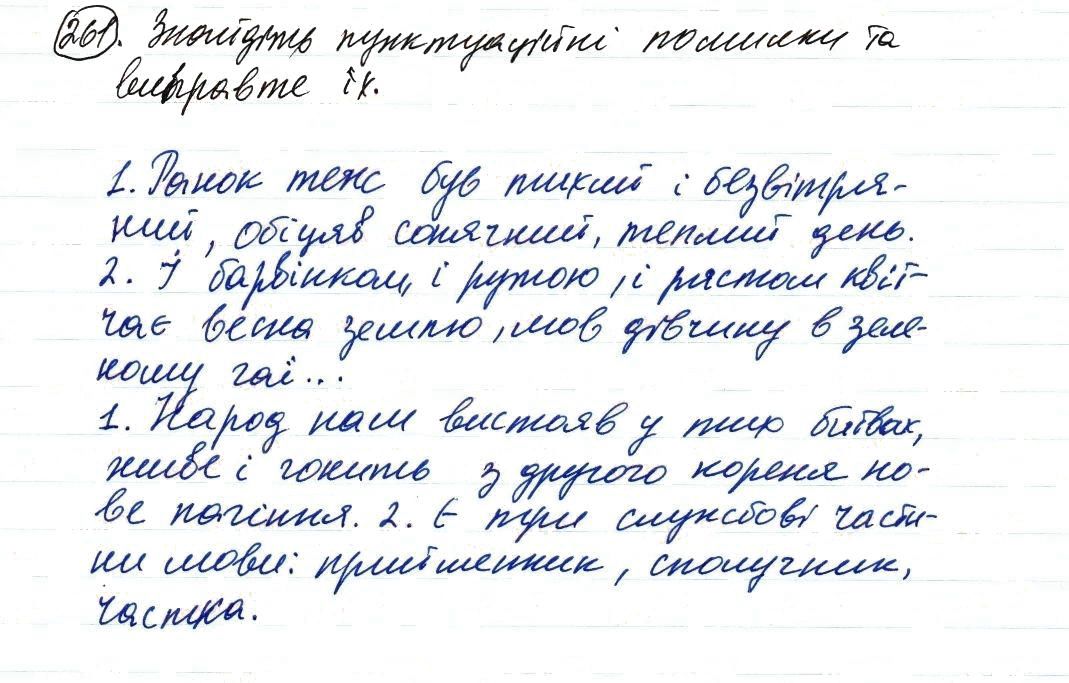 261. Знайдіть пунктуаційні помилки та
виправте їх.
1. Ранок теж був тихий і безвітря-
ний, обіцяв сонячний, теплий день.
2. І барвінком, і рутою, і рястом квіт-
чає весна землю, мов дівчину в зеле-
ному гаї...
1. Народ наш вистояв у тих битвах,
живе і гонить з другого кореня но-
ве пагіння. 2. Є три службові части-
ни мови: прийменник, сполучник,
частка.